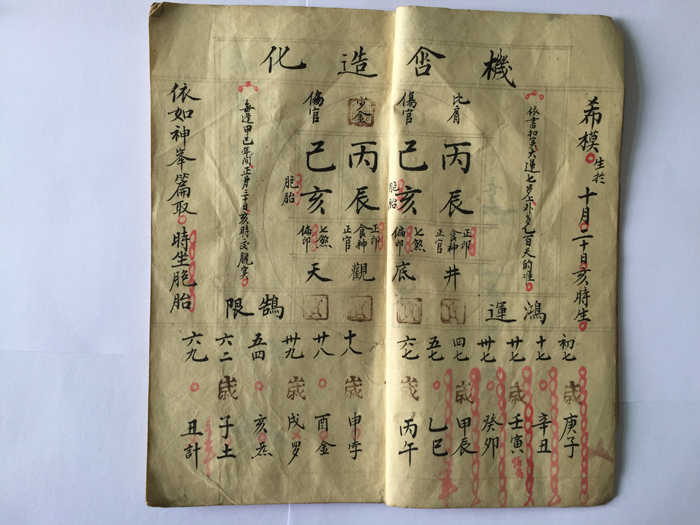 機含造化
希模生於十月二十日亥時生
大運七岁上
比肩
丙辰
正印
食神
正官
井
傷官
己亥
胞胎
七煞
偏印
底
少金
丙辰
正印
食神
正官
觀
傷官
己亥
胞胎
七煞
偏印
天
每逢甲己年間正月二十日亥時交脫
依如神峯篇取時生胞胎
鴻運
鵠限
初七歲庚子
十七辛丑
廿七歲壬寅
卅七癸卯
四七歲甲辰
五七乙巳
六七歲丙午
十八歲申孛
廿八酉金
卅九歲戌罗
五四亥炁
六二歲子土
六九丑計